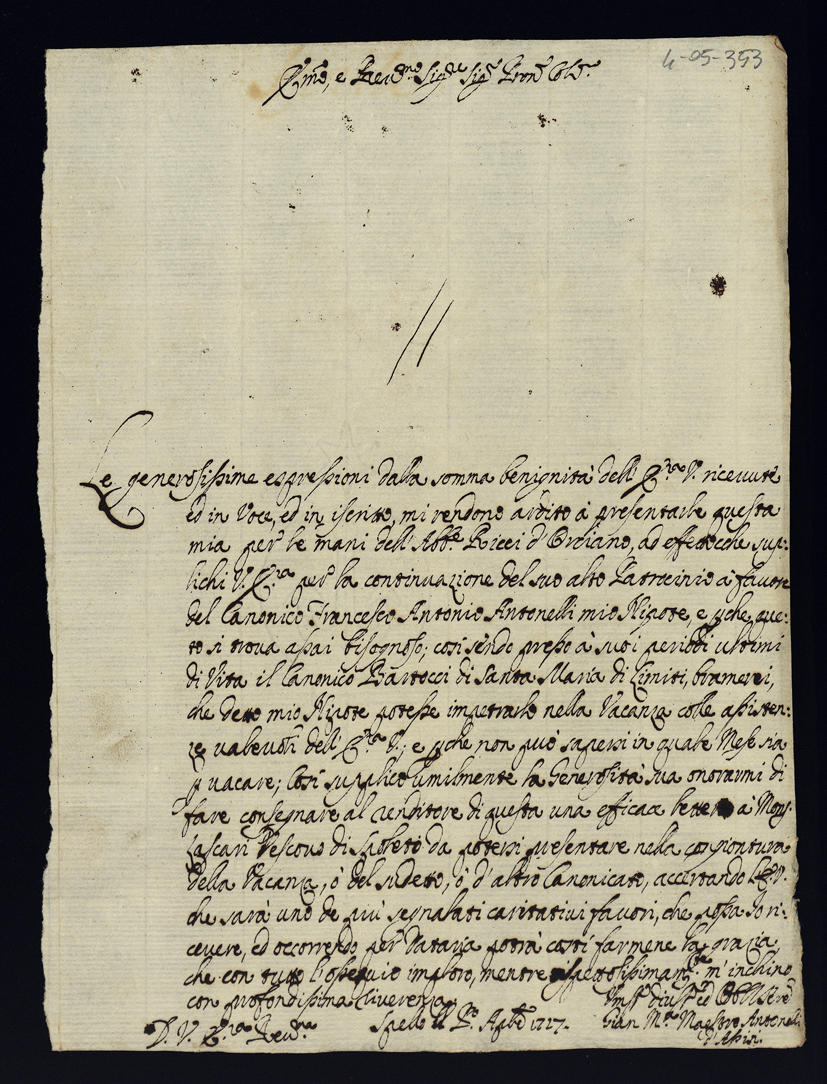 4-05-353
Em̃o, e Reverd.mo Sig.re Sig.r Pron.e Col.mo
Le generosissime espressioni dalla somma benignità dell' Em.za V. riceuute
ed in Voce, ed in iscritto, mi rendono ardito à presentarle questa
mia per le mani dell' Abb.e Ricci d'Orciano, ad effettocche sup:
lichi V. Em.za per la continuazione del suo alto Patrocinio à fauore
del Canonico Francesco Antonio Antonelli mio Nipote, e pche que:
sto si troua assai bisognoso; così sendo presso à suoi periodi ultimi
di Vita il Canonico Bartocci di Santa Maria di Limiti, bramerei,
che detto mio Nipote potesse impetrarlo nella Vacanza colle assisten:
ze ualeuoli dell' Em.za V.; e pche non può sapersi in quale Mese sia
p uacare; Così supplico umilmente la Generosità sua onorarmi di
fare consegnare al renditore di questa una efficace lettera à Mons.
Lascari Vescouo di Spoleto da potersi presentare nella congiontura
della Vacanza, ò del sudetto, ò d'altro Canonicato, accertando l'Em. V.
che sarà uno de più segnalati caritatiui fauori, che possa io ri:
ceuere, ed occorrendo per Dataria potrà costì farmene la grazia,
che con tutto l'ossequio imploro, mentre rispettosissimam.te m' inchino
con profondissima riuerenza
D. V. Em.za Reu.ma
Spello il P.o Aple 1727.
Vm.o Diu.o ed Obbl. Ser.e
Gian M.a Maestro Antonelli
d'Assisi